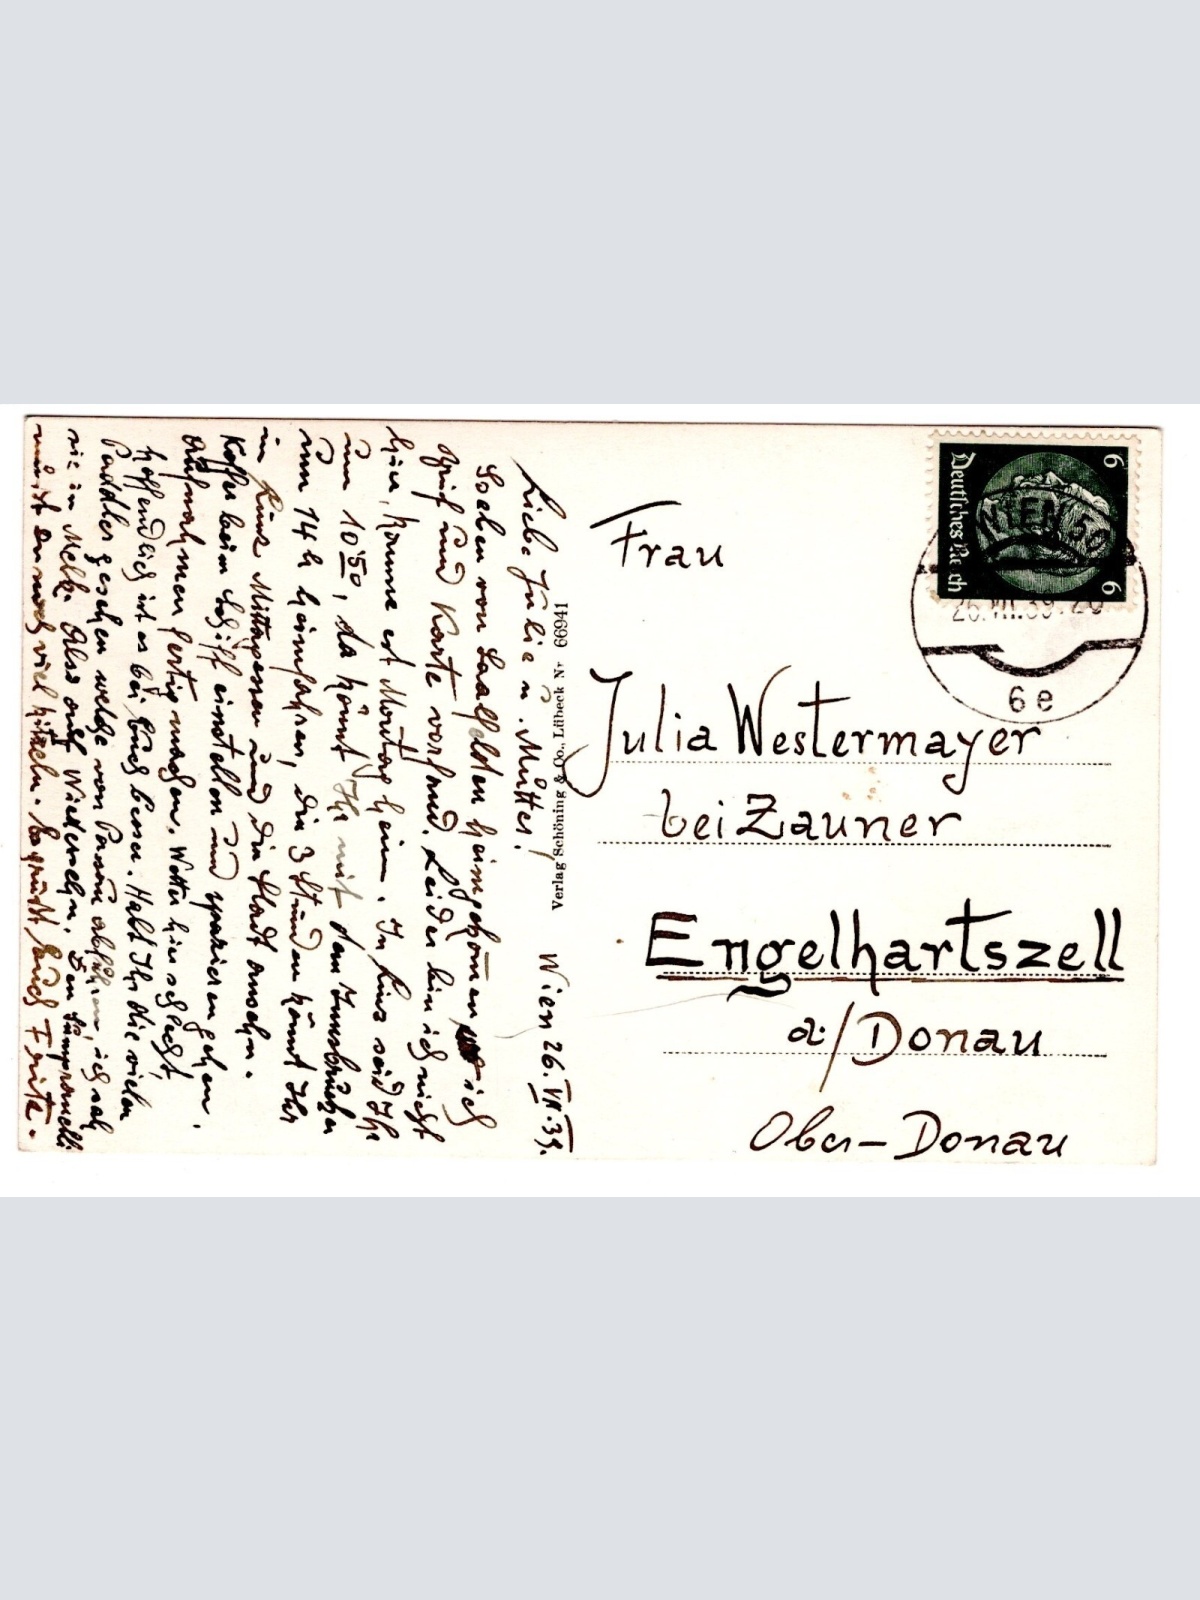 Wien 26.VII.39.
Liebe Julie u. Mutter!
Soeben von Saalfelden heimgekommen
Brief und Karte vorfand. Leider bin ich nicht
hier, komme erst Montag heim. In Linz seid Ihr
um 10 50, da könnt Ihr mit dem Innsbrucker
um 14 h heimfahren, die 3 Stunden könnt Ihr
in Linz Mittagessen und die Stadt ansehn.
Koffer beim Schiff einstellen und spazieren gehen.
Aufnahmen fertig machen. Wetter hier schlecht,
hoffendlich ist es bei Euch besser. Habt Ihr die vielen
Paddler gesehen welche von Passau abfuhren, ich sah
sie in Melk. Also auf Wiedersehn. Den
müsst Ihr noch viel kitzeln. Es grüsst Euch Fritz.
Verlag Schöning & Co., Lübeck Nr 66941
Deutsches Reich
6
6
WIEN 50
26.VII.39.20
6e
Frau
Julia Westermayer
bei Zauner
Engelhartszell
a/Donau
Ober-Donau